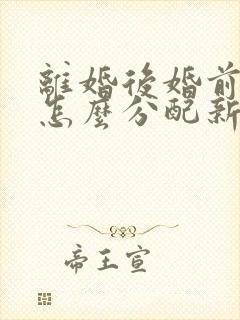 離婚後婚前
怎麼分配新
帝王宣